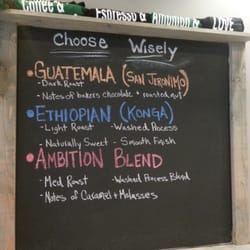 Coffee & Espresso & Ambition & LOVE
Choose Wisely
• GUATEMALA (SAN JERONIMO)
- Dark Roast
- Notes of bakers chocolate + roasted nuts
• ETHIOPIAN (KONGA)
- Light Roast - Washed Process
- Naturally Sweet - Smooth Finish
• AMBITION BLEND
- Med Roast - Washed Process Blend
- Notes of Caramel + Molasses